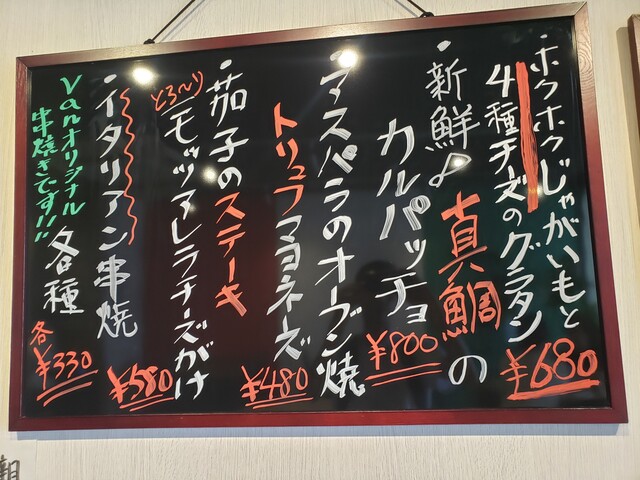 ・ホクホクじゃがいもと
4種チーズのグラタン
¥680
・新鮮♪真鯛の
カルパッチョ
¥800
・アスパラのオーブン焼
トリュフマヨネーズ
¥480
・茄子のステーキ
とろ〜りモッツァレラチーズがけ
¥580
・イタリアン串焼
各種
各¥330
vanオリジナル
串焼きです!!
朝